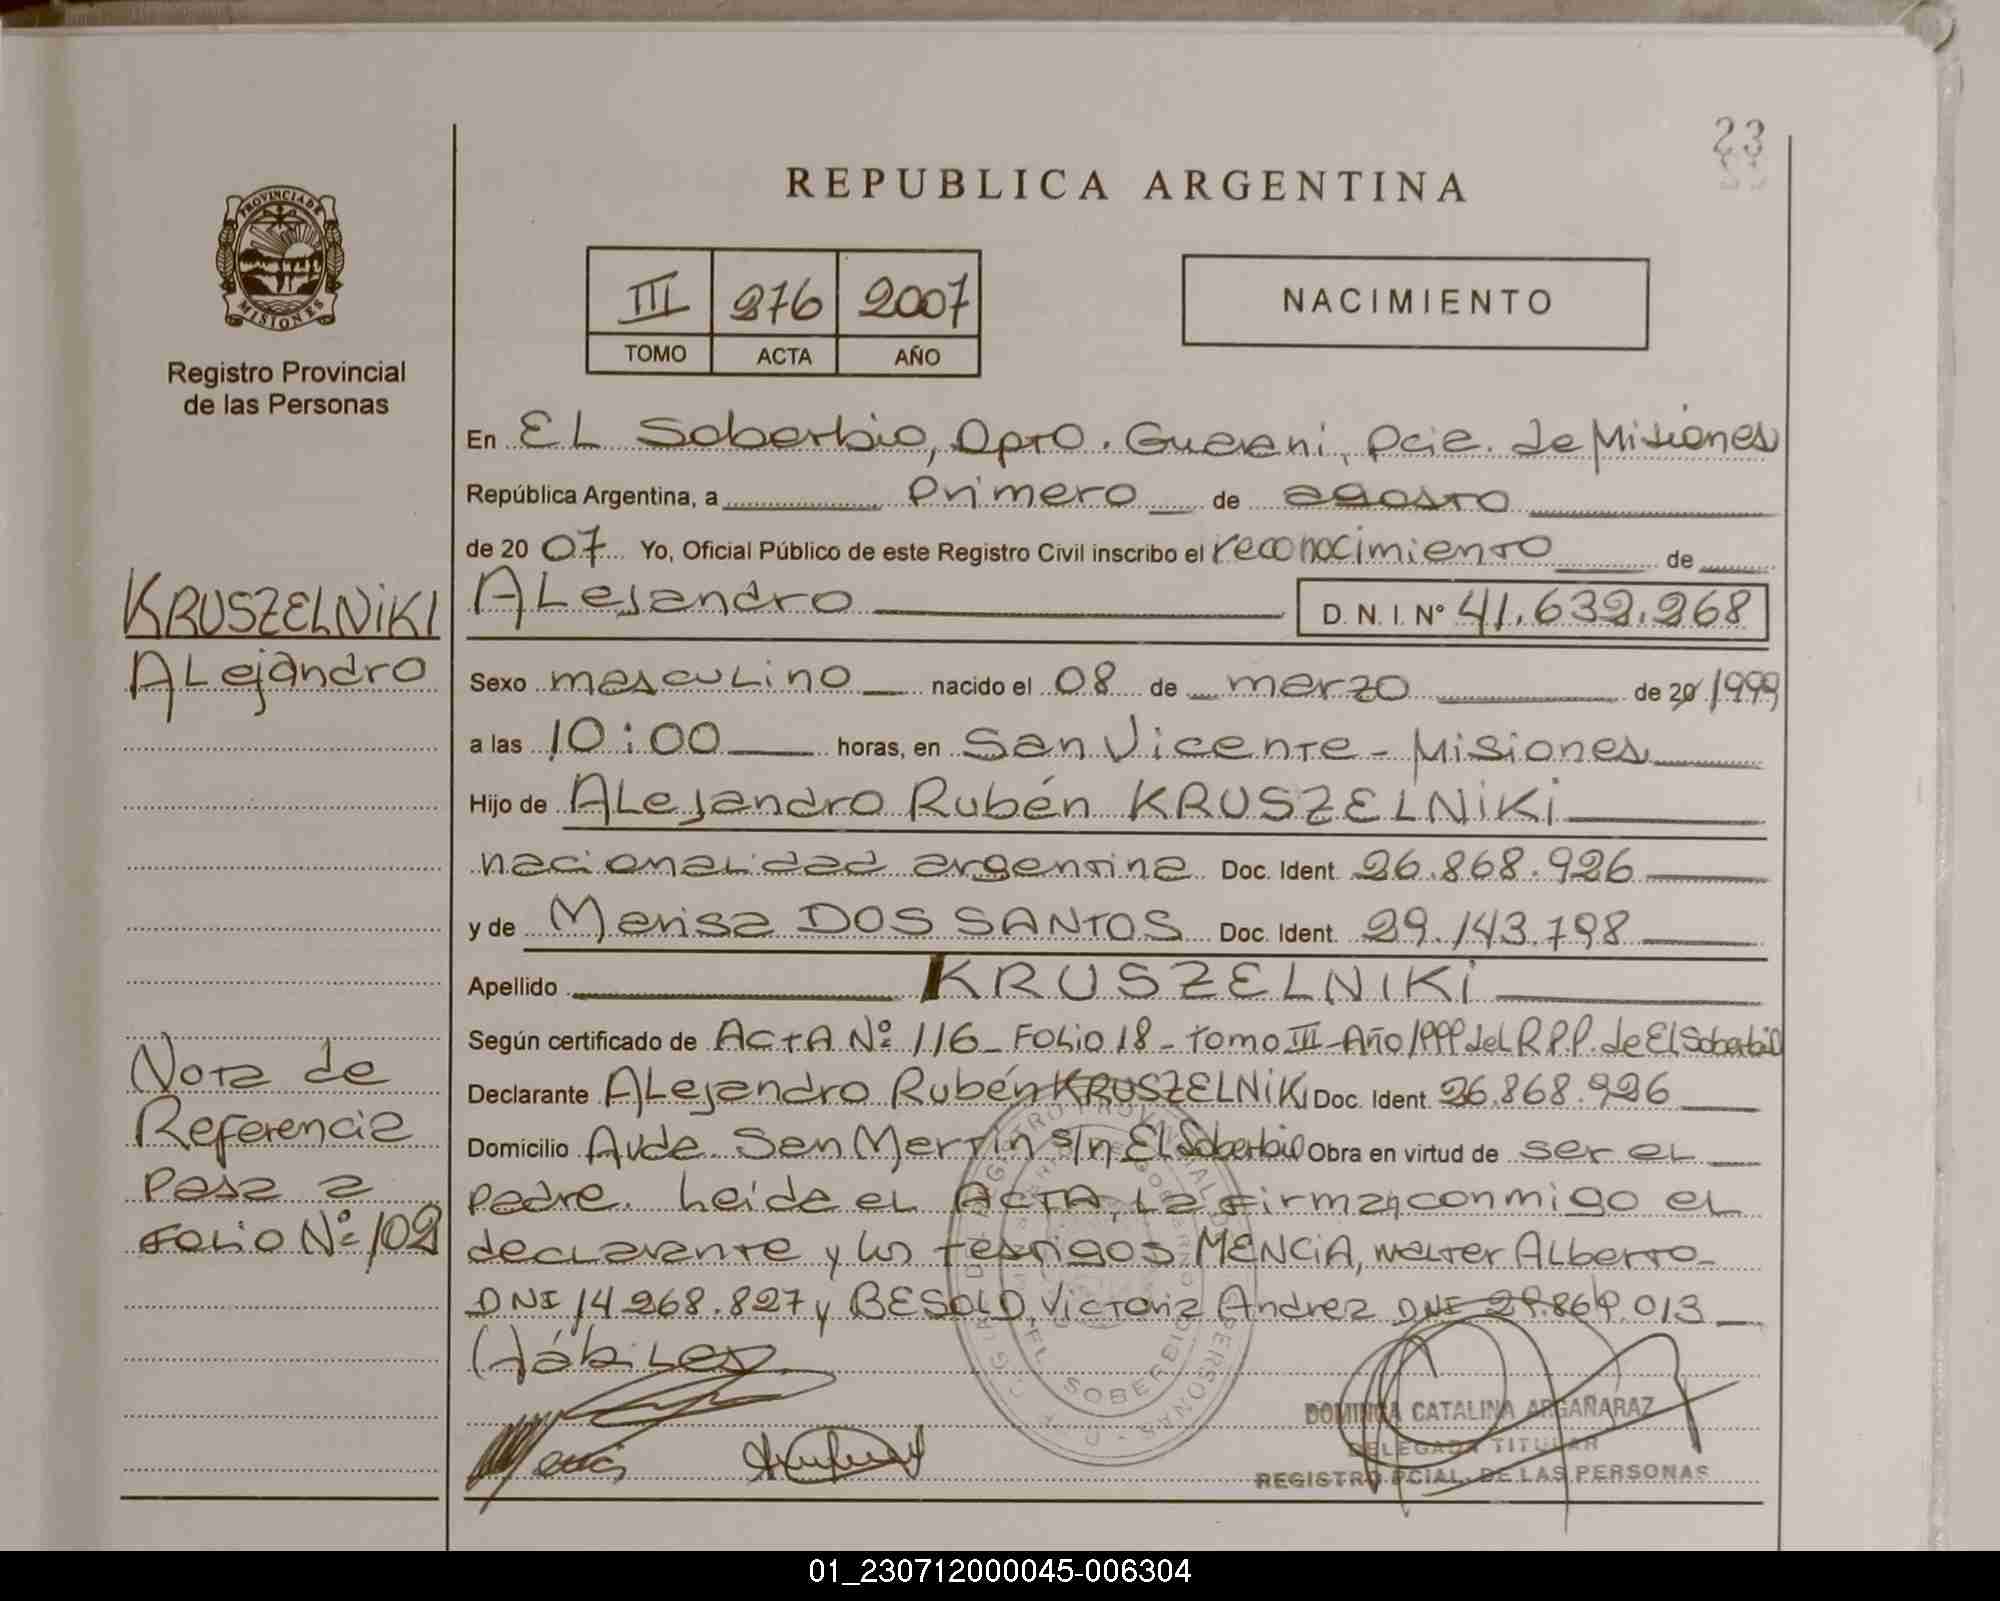 23
REPUBLICA ARGENTINA
PROVINCIA DE MISIONES
Registro Provincial
de las Personas
III 276 2007
TOMO ACTA AÑO
NACIMIENTO
En EL Soberbio, Dpto. Guarani, Pcia. de Misiones
República Argentina, a Primero de agosto
de 20 07 Yo, Oficial Público de este Registro Civil inscribo el reconocimiento de
ALejandro D. N. I. Nº 41.632.268
KRUSZELNIKI
ALejandro
Sexo mascuLino nacido el 08 de marzo de 20 1999
a las 10:00 horas, en San Vicente - Misiones
Hijo de ALejandro Rubén KRUSZELNIKI
nacionaLidad argentina Doc. Ident. 26.868.926
y de Marisa DOS SANTOS Doc. Ident. 29.143.798
Apellido KRUSZELNIKI
Según certificado de ACTA Nº 116 - FOLio 18 - Tomo III - Año 1999 del R.P.P. de El Soberbio
Declarante ALejandro Rubén KRUSZELNIKI Doc. Ident. 26.868.926
Domicilio Avda. San Martín s/n El Soberbio Obra en virtud de ser eL
padre. Leida eL ACTA, La firman conmigo eL
decLarante y los testigos MENCIA, WaLter ALberto-
DNI 14.268.827 y BESOLD, Victoria Andrea DNI 29.869.013
Hábiles
Nota de
Referencia
Pasa a
FOLio Nº 102
EL SOBERBIO
DOMINGA CATALINA ARGAÑARAZ
DELEGADA TITULAR
REGISTRO PCIAL. DE LAS PERSONAS
01_230712000045-006304